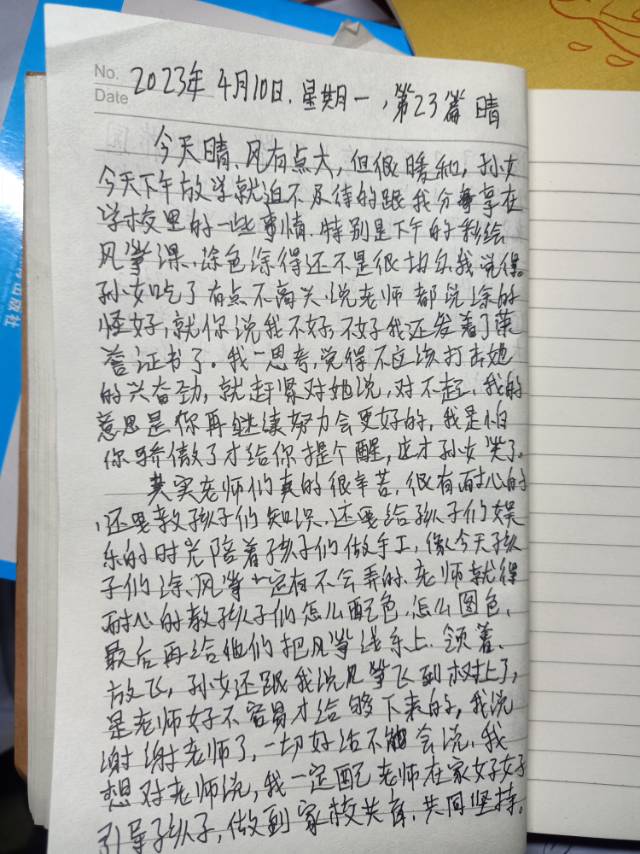 No.
Date
2023年4月10日.星期一,第23篇 晴
今天晴、风有点大,但很暖和,孙女
今天下午放学就迫不及待的跟我分享在
学校里的一些事情、特别是下午的彩绘
风筝课、涂色涂得还不是很均匀我觉得。
孙女吃了有点不高兴、说老师都说涂的
怪好,就你说我不好,不好我还发着了荣
誉证书了。我一思考,觉得不应该打击她
的兴奋劲,就赶紧对她说,对不起、我的
意思是你再继续努力会更好的,我是怕
你骄傲了才给你提个醒,这才孙女笑了。
其实老师们真的很辛苦,很有耐心的
、还要教孩子们知识、还要给孩子们娱
乐的时光陪着孩子们做手工,像今天孩
子们涂、风筝一定有不会弄的、老师就得
耐心的教孩子们怎么配色,怎么图色、
最后再给他们把风筝线系上.领着、
放飞,孙女还跟我说风筝飞到树上了,
是老师好不容易才给够下来的,我说
谢谢老师了,一切好话不能会说,我
想对老师说,我一定配老师在家好好
引导孩子,做到家校共育、共同坚持。
出版社